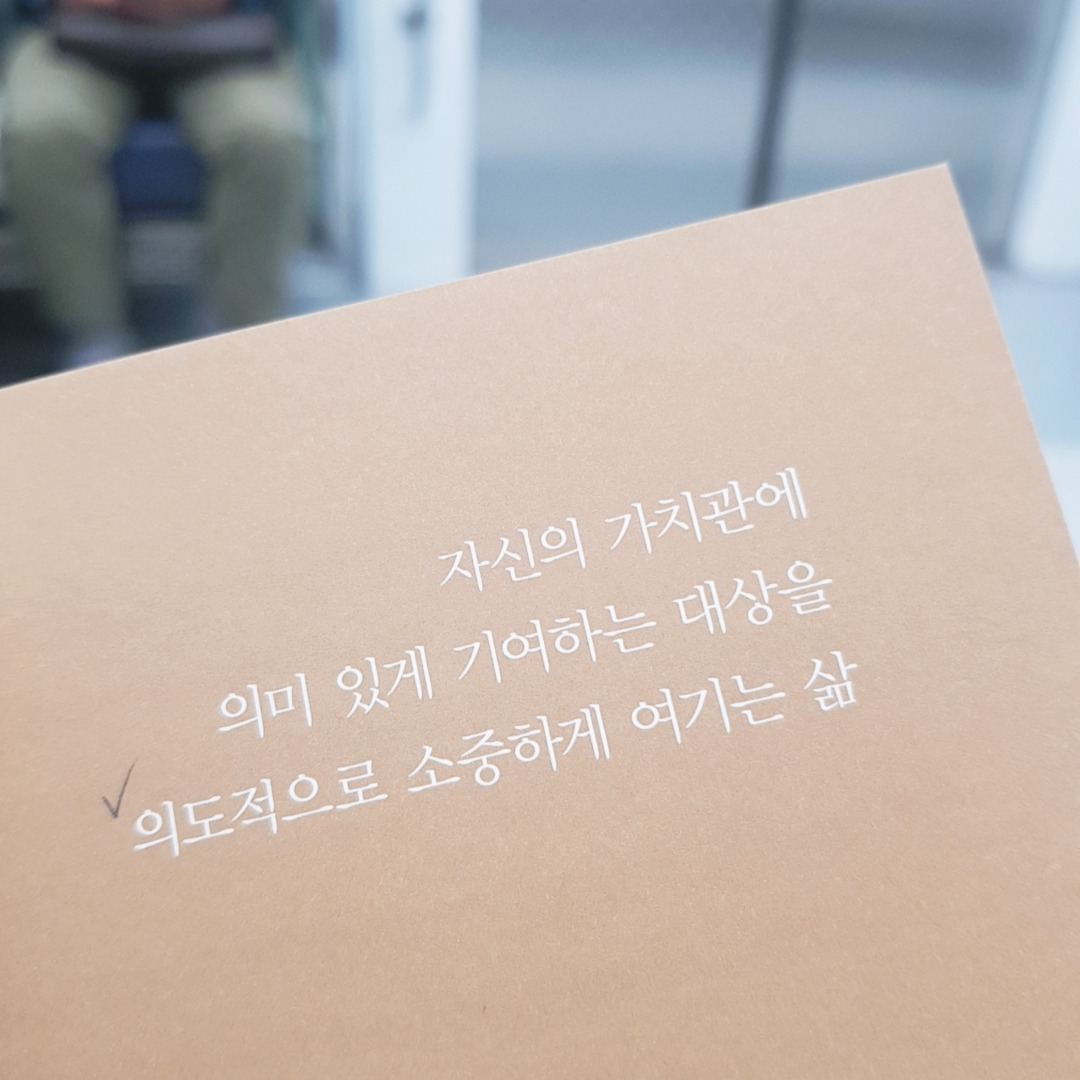 자신의 가치관에
의미 있게 기여하는 대상을
의도적으로 소중하게 여기는 삶